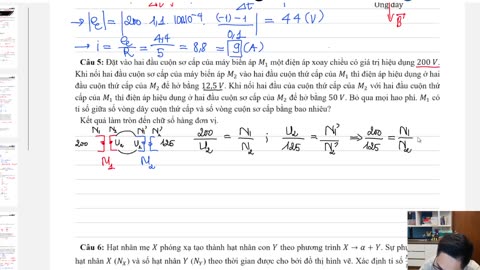 Δt
Ứng dạy
→ |e_c| = |200 . 1,1 . 100.10⁻⁴ . (-1) - 1 / 0,1| = 44 (V)
→ i = e_c / R = 4,4 / 5 = 8,8 = 9 (A)
B⃗
Câu 5: Đặt vào hai đầu cuộn sơ cấp của máy biến áp M₁ một điện áp xoay chiều có giá trị hiệu dụng 200 V.
Khi nối hai đầu cuộn sơ cấp của máy biến áp M₂ vào hai đầu cuộn thứ cấp của M₁ thì điện áp hiệu dụng ở hai
đầu cuộn thứ cấp của M₂ để hở bằng 12,5 V. Khi nối hai đầu cuộn thứ cấp của M₂ với hai đầu cuộn thứ
cấp của M₁ thì điện áp hiệu dụng ở hai đầu cuộn sơ cấp của M₂ để hở bằng 50 V. Bỏ qua mọi hao phí. M₁ có
tỉ số giữa số vòng dây cuộn thứ cấp và số vòng cuộn sơ cấp bằng bao nhiêu?
Kết quả làm tròn đến chữ số hàng đơn vị.
N₁ N₂ N₁' N₂'
200 U₂ U₂ 12,5
M₁ M₂
200 / U₂ = N₁ / N₂ ; U₂ / 12,5 = N₁' / N₂' ⇒ 200 / 12,5 = N₁ / N₂
Câu 6: Hạt nhân mẹ X phóng xạ tạo thành hạt nhân con Y theo phương trình X → α + Y. Sự
hạt nhân X (N_X) và số hạt nhân Y (N_Y) theo thời gian được cho bởi đồ thị hình vẽ. Xác định tỉ số